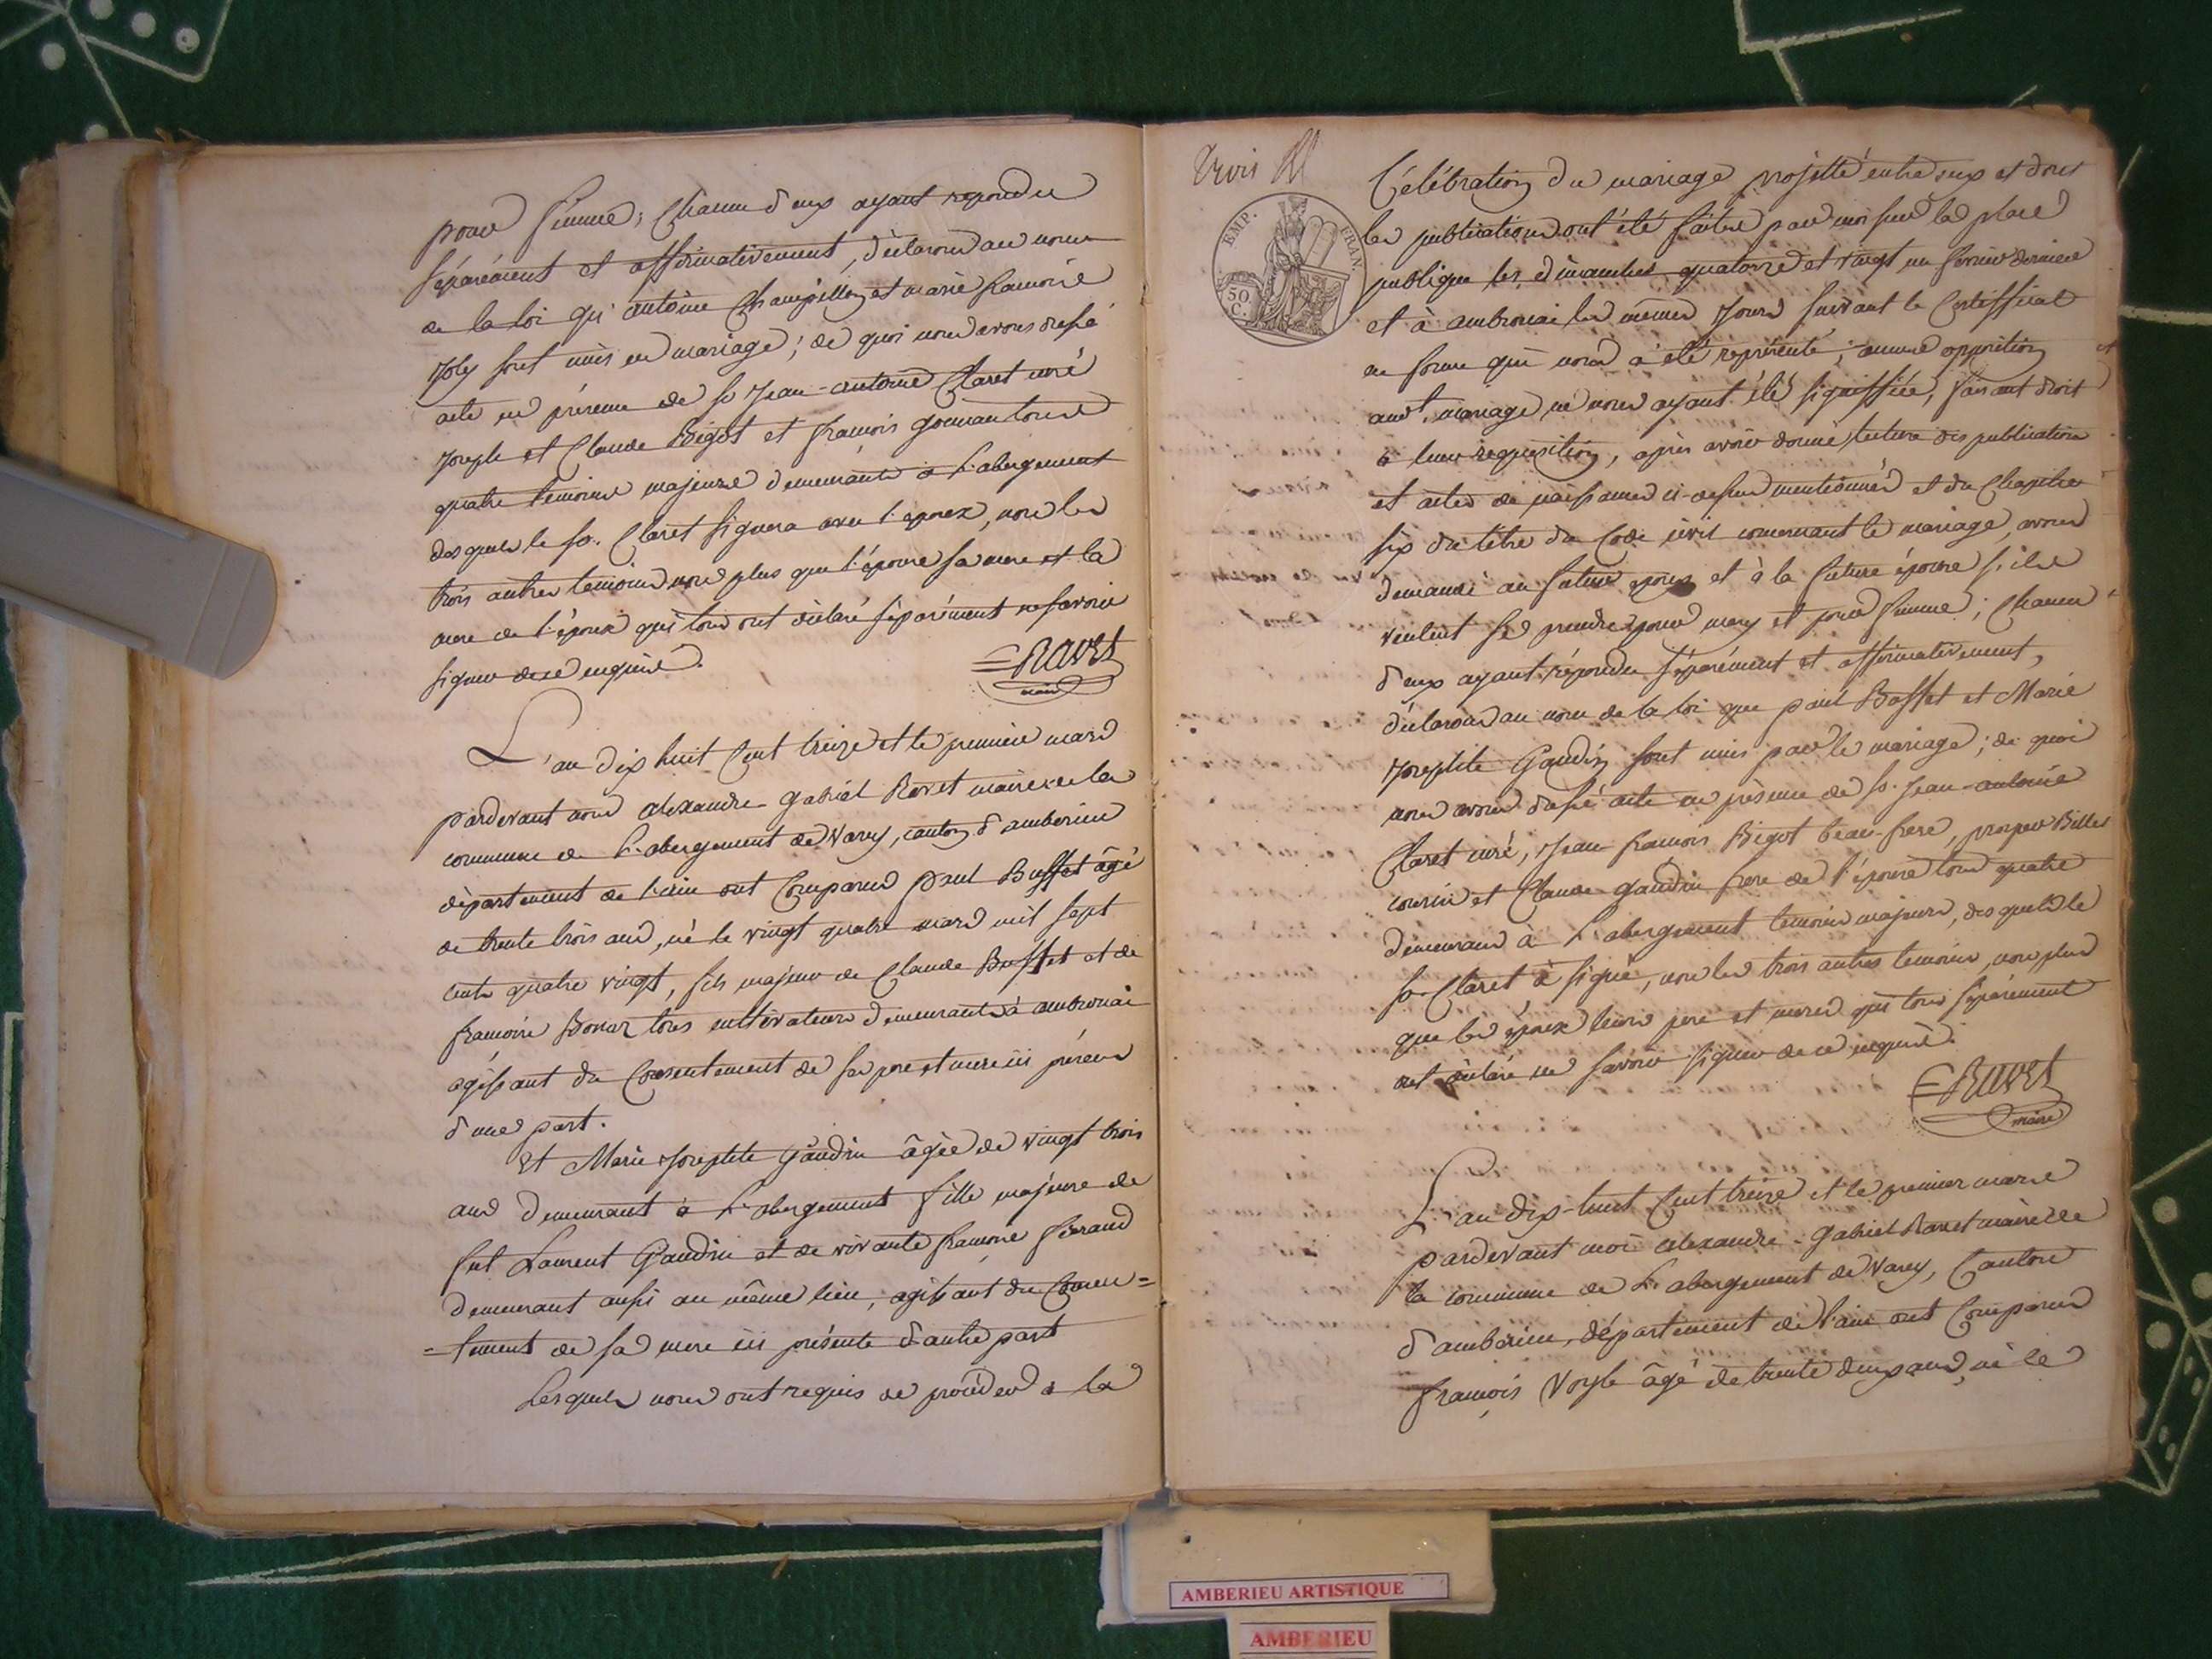 pour femme; Chacun d'eux ayant repondu
séparément et affirmativement, déclarons au nom
de la loi qu'antoine Champillon et marie francoise
Joly sont unis en mariage; de quoi nous avons dressé
acte en présence de sr Jean-antoine Claret curé
Joseph et Claude Bigot et francois
quatre temoins majeurs demeurants à L'abergement
desquels le sr. Claret signera avec l'époux, non les
trois autres temoins non plus que l'épouse sa mere et la
mere de l'époux qui tous ont déclaré séparément ne savoir
signer de ce enquis.
Ravet
maire
L'an dix huit Cent treize et le premier mars
pardevant nous alexandre-gabriel Ravet maire de la
commune de L'abergement de Varey, canton d'amberieu
département de l'ain ont Comparus paul Buffet âgé
de trente trois ans, né le vingt quatre mars mil sept
cents quatre vingt, fils majeur de Claude Buffet et de
francoise tous cultivateurs demeurants à ambronai
agissant du Consentement de ses pere et mere ici présens
d'une part.
Et Marie Josephte Gaudin âgée de vingt trois
ans demeurant à L'abergement fille majeure de
fut Laurent Gaudin et de vivante francoise
demeurant aussi au même lieu, agissant du Consen=
=tement de sa mere ici présente d'autre part
Lesquels nous ont requis de procéder à la
trois
EMP. FRAN.
50 C.
Célébration du mariage projetté entre eux et dont
les publications ont été faites par moi sur la place
publique les dimanches quatorze et vingt un fevrier dernier
et à ambronai les mêmes Jours suivant le Certifficat
en forme qui nous a été représenté; aucune opposition
audt. mariage ne nous ayant été signiffiée, faisant droit
à leur requisition, après avoir donné lecture des publications
et actes de naissances ci-dessus mentionnés et du Chapitre
six du titre du Code civil concernant le mariage, avons
demandé au futur époux et à la future épouse s'ils
veulent se prendre pour mary et pour femme; Chacun
d'eux ayant répondu séparément et affirmativement,
déclarons au nom de la loi que paul Buffet et Marie
Josephte Gaudin sont unis par le mariage; de quoi
nous avons dressé acte en présence de sr. Jean-antoine
Claret curé, Jean francois Bigot beau-frere, prosper Billet
cousin et Claude Gaudin frere de l'épouse tous quatre
demeurans à L'abergement temoins majeurs, desquels le
sr. Claret à signé, non les trois autres temoins, non plus
que les époux leurs pere et meres qui tous séparément
ont déclaré ne savoir signer de ce enquis.
Ravet
maire
L'an dix-huit Cent treize et le premier mars
pardevant moi alexandre-Gabriel Ravet maire de
la commune de L'abergement de Varey, Canton
d'amberieu, département de l'ain ont Comparus
françois Voysle âgé de trente deux ans, né le
AMBERIEU ARTISTIQUE
AMBERIEU